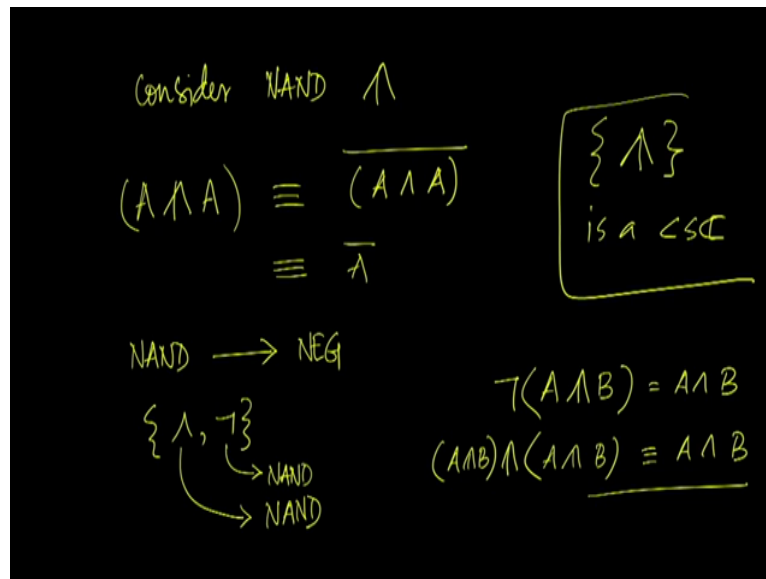 Consider NAND ⩚
(A ⩚ A) ≡ \overline{(A ∧ A)}
≡ \overline{A}
{⩚}
is a CSC
NAND → NEG
{∧, ¬}
→ NAND
→ NAND
¬(A ⩚ B) = A ∧ B
(A ⩚ B) ⩚ (A ⩚ B) ≡ A ∧ B